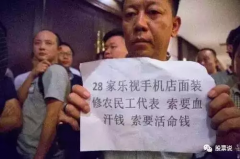 28家乐视手机店面装
修农民工代表 索要血
汗钱 索要活命钱
股票说